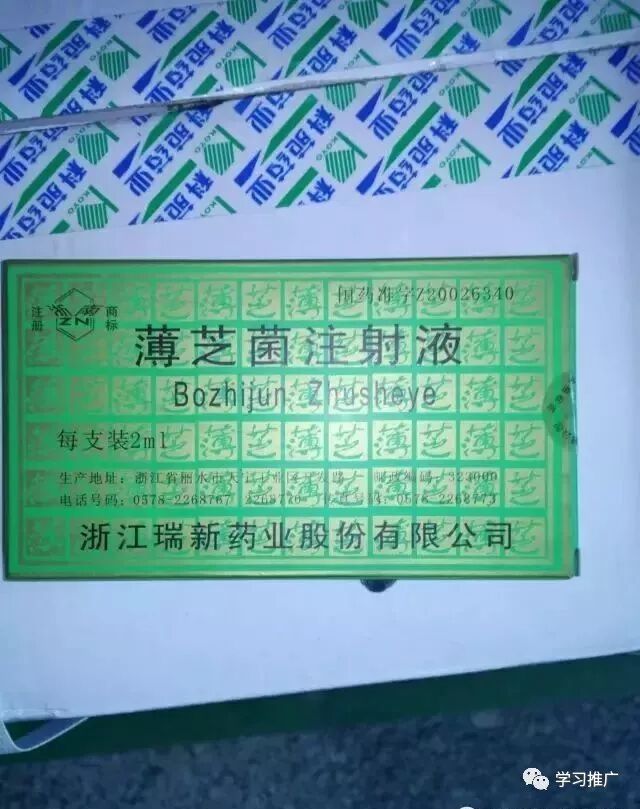 科苑药业
KOYO
国药准字Z20026340
注册
商标
薄芝菌注射液
Bozhijun Zhusheye
每支装2ml
生产地址：浙江省丽水市 邮政编码：323000
电话号码：0578-2268767 2268770 0578-2268773
浙江瑞新药业股份有限公司
学习推广